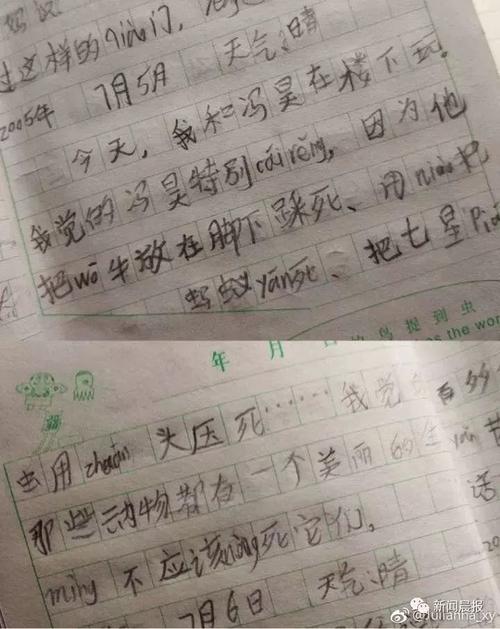 过这样的 门,
2005年 7月5月 天气:晴
今天,我和冯昊在楼下玩。
我觉的冯昊特别cánrěng,因为他
把wō牛放在脚下踩死、用niào把
蚂蚁yān死、把七星Piáo
鸟捉到虫
the wor
年 月 日
虫用zhuān头压死……我觉
那些动物都有一个美丽的生
mìng 不应该nòng死它们。
话
7月6日 天气:晴
新闻晨报
@Julianna_xy